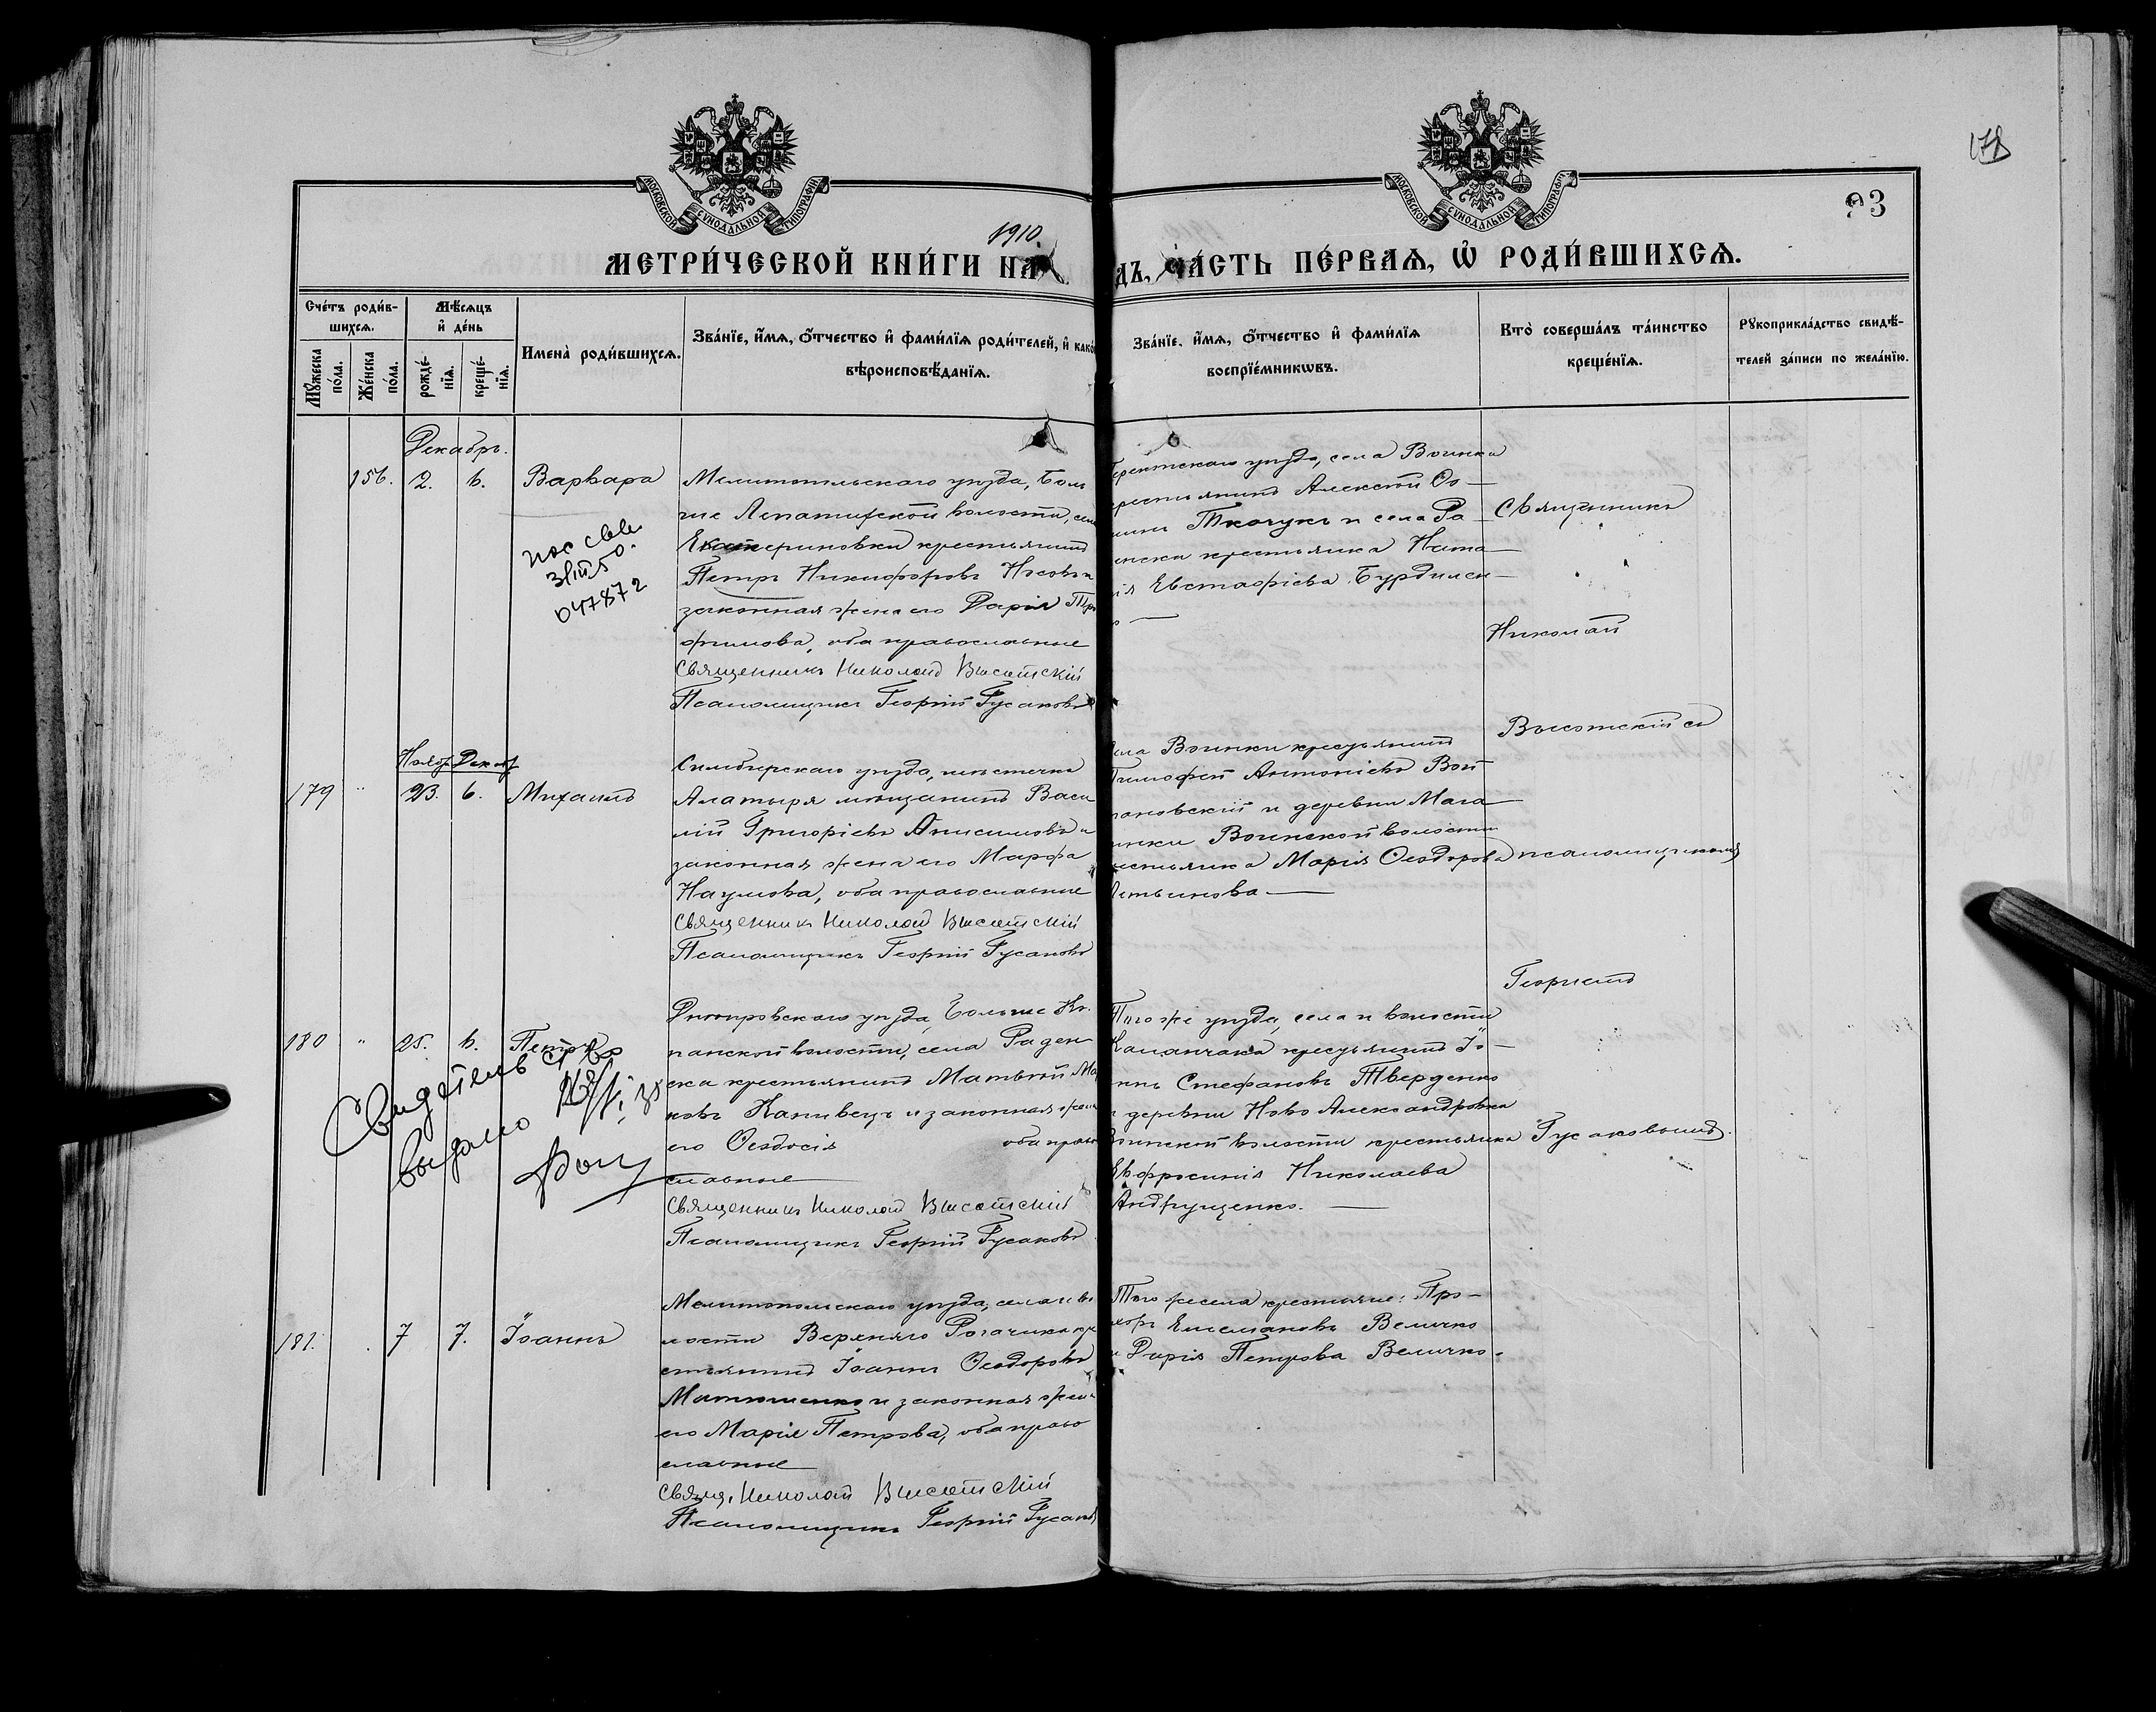 178
93
МОСКОВСКОЙ СУНОДАЛЬНОЙ ТИПОГРАФІИ
МОСКОВСКОЙ СУНОДАЛЬНОЙ ТИПОГРАФІИ
1910.
МЕТРИ́ЧЕСКОЙ КНИ́ГИ НА
ДЪ, ЧА́СТЬ ПЕ́РВАѦ, Ѿ РОДИ́ВШИХСѦ.
Сче́тъ роди́в-
шихсѧ.
Мꙋжеска по́ла.
Же́нска по́ла.
Мѣ́сѧцъ
и҆ де́нь
рожде́-
нїѧ.
креще́-
нїѧ.
Имена̀ роди́вшихсѧ.
Зва́нїе, и҆́мѧ, ѻ҆́тчество и҆ фами́лїѧ роди́телей, и҆ како
вѣроисповѣ́данїѧ.
Зва́нїе, и҆́мѧ, ѻ҆́тчество и҆ фами́лїѧ
воспрїе́мникѡвъ.
Кто̀ соверша́лъ та́инство
креще́нїѧ.
Рꙋкоприкла́дство свидѣ́-
телей за́писи по жела́нїю.
Декабрь.
156. 2. 6. Варвара
Мелитопольскаго уѣзда, Боль
ше Лепатихской волости, села
Екатериновки крестьянинъ
Петръ Никифоровъ и
законная жена его Дарія
фимова, оба православные
Священникъ Николай Высотскій
Псаломщикъ Георгій Гусаковъ
047872
уѣзда, села Воинки
крестьянинъ Алексѣй
Ткачукъ и села Ра
енска крестьянка Ната
лія Евстафіева Бурдилен
Священникъ
Николай
Высотскій съ
псаломщикомъ
Георгіемъ
Гусаковымъ.
Ноябр. Декабр
179 " 23. 6. Михаилъ
Симбирскаго уѣзда, мѣстечка
Алатыря мѣщанинъ Васи
лій Григоріевъ Анисимовъ и
законная жена его Марфа
Наумова, оба православные
Священникъ Николай Высотскій
Псаломщикъ Георгій Гусаковъ
села Воинки крестьянинъ
Тимофей Антоніевъ Вой
тановскій и деревни Мага
зинки Воинской волости
крестьянка Марія Ѳеодорова
180 " 25. 6. Петръ
Днѣпровскаго уѣзда, Больше Ко
панской волости, села Раден
ска крестьянинъ Матвѣй Ма
ковъ Канивецъ и законная жена
его Ѳеодосія оба право
славные
Священникъ Николай Высотскій
Псаломщикъ Георгій Гусаковъ
Свидетельство
выдано
Того же уѣзда, села и волости
Каланчака крестьянинъ Іо-
аннъ Стефановъ Тверденко
и деревни Ново Александровка
Воинской волости крестьянка
Евфросинія Николаева
Андрущенко.
181. . 7 7. Іоаннъ
Мелитопольскаго уѣзда, села и во
лости Верхняго Рогачика кре
стьянинъ Іоаннъ Ѳеодоровъ
Матюшенко и законная жена
его Марія Петрова, оба право
славные
Свящ. Николай Высотскій
Псаломщикъ Георгій Гусаковъ
Того же села крестьяне: Про-
хоръ Емельяновъ Величко
и Дарія Петрова Величко.